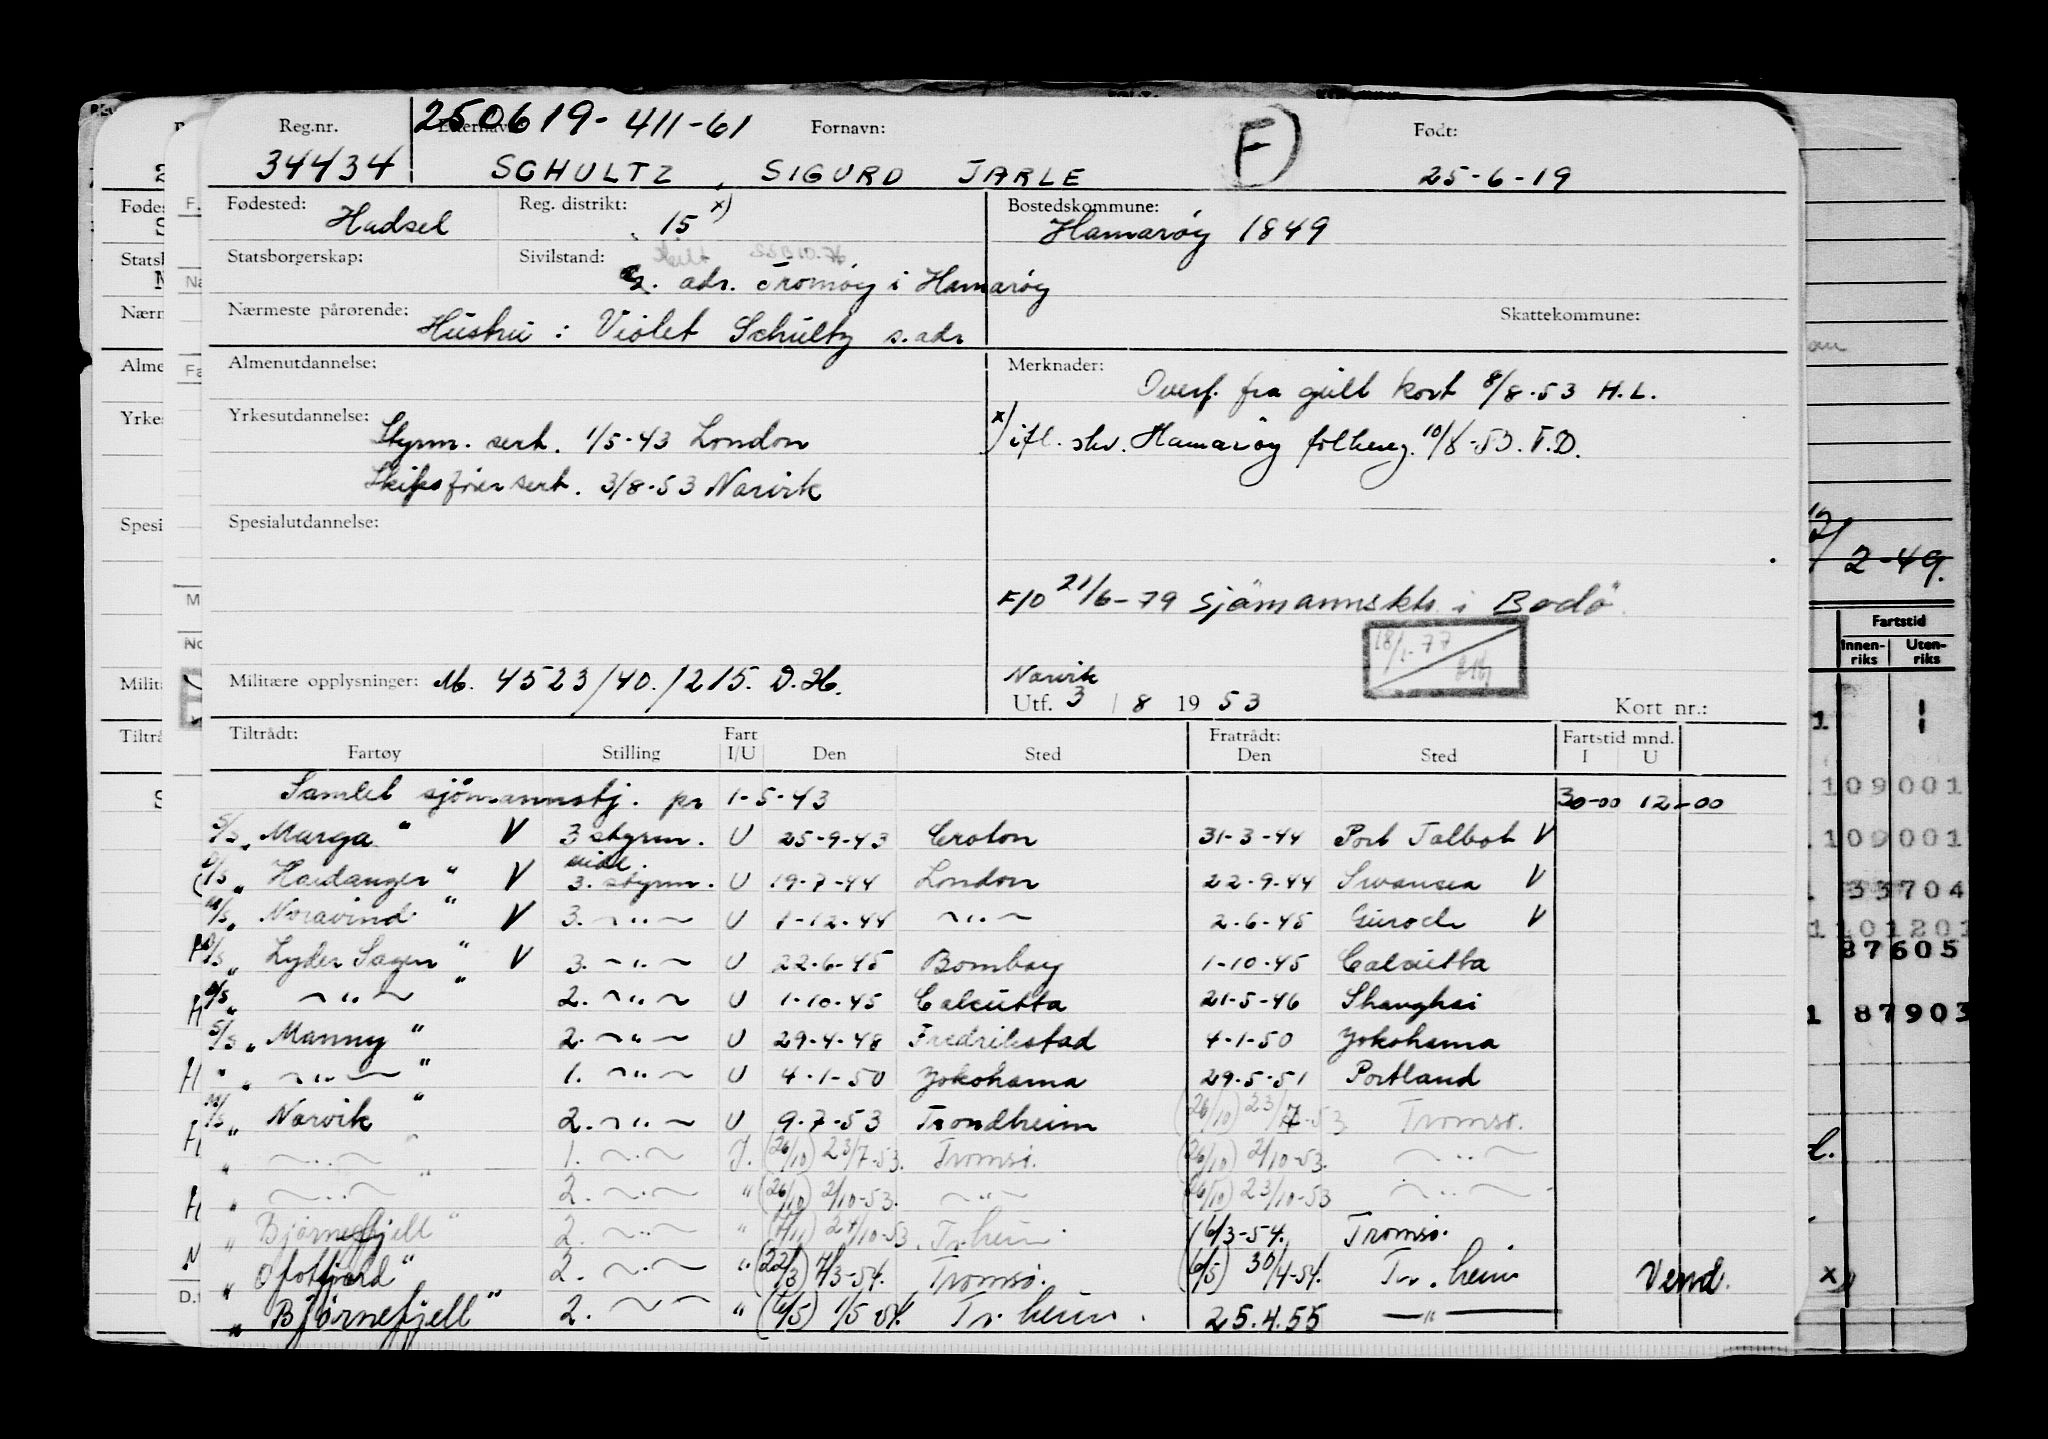 Reg.nr. Etternavn: 250619-411-61 Fornavn: F) Født:
34434 SCHULTZ, SIGURD JARLE 25-6-19
Fødested: Hadsel Reg. distrikt: 15 x) Bostedskommune: Hamarøy 1849
Statsborgerskap: Sivilstand: G. adr. Tromøy i Hamarøy
Nærmeste pårørende: Hustru: Violet Schultz s.adr Skattekommune:
Almenutdannelse: Merknader: Overf. fra gult kort 8/8-53 H.L.
Yrkesutdannelse: Styrm. sert. 1/5-43 London x) ifl. skr. Hamarøy folkereg. 10/8-53. T.D.
Skipsfører sert. 3/8-53 Narvik
Spesialutdannelse:
F/O 21/6-79 Sjömannsktr. i Bodö.
18/1-77
Militære opplysninger: M. 4523/40./215. D.H. Narvik
Utf. 3/8 1953 Kort nr.:
Tiltrådt: Fart Fratrådt: Fartstid mnd.
Fartøy Stilling I/U Den Sted Den Sted I U
Samlet sjömannstj. pr 1-5-43 30-00 12-00
S/S "Marga" V 3 styrm. U 25-9-43 Croton 31-3-44 Port Talbot V
D/S "Hardanger" V 3. styrm. U 19-7-44 London 22-9-44 Swansea V
M/S "Noravind" V 3. ~"~ U 1-12-44 ~"~ 2-6-45 Gurock V
D/S "Lyder Sagen" V 3. ~"~ U 22-6-45 Bombay 1-10-45 Calcutta
H D/S " ~"~ " 2. ~"~ U 1-10-45 Calcutta 21-5-46 Shanghai
S/S "Manny" 2. ~"~ U 29-4-48 Fredrikstad 4-1-50 Yokohama
H " " ~"~ " 1. ~"~ U 4-1-50 Yokohama 29-5-51 Portland
M/S "Narvik" 2. ~"~ U 9-7-53 Trondheim (26/10) 23/7-53 Tromsø.
H " ~"~ " 1. ~"~ I. (26/10) 23/7-53. Tromsø. (26/10) 2/10-53. ~"~
H " ~"~ " 2. ~"~ " (26/10) 2/10-53. ~"~ (26/10) 23/10-53 ~"~
" Bjørnefjell" 2. ~"~ " 24/10-53. Tr.heim. 16/3-54. Tromsø.
" Ofotfjord" 2. ~"~ " (22/3) 17/3-54. Tromsø. (6/5) 30/4-54. Tr.heim Vend.
" Bjørnefjell" 2. ~ ~ " (6/5) 1/5 54. Tr.heim. 25.4.55 —"—
2-49.
Fartstid
Innen-riks Uten-riks
109001
109001
33704
101201
87605
87903